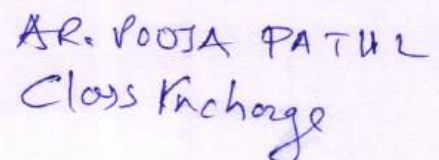 AR. POOJA PATHL
Class Incharge